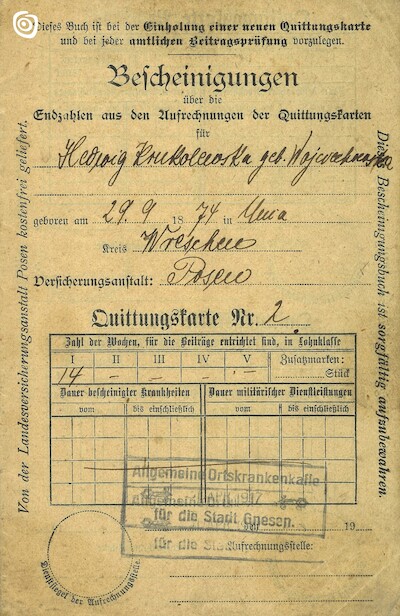 Dieses Buch ist bei der Einholung einer neuen Quittungskarte
und bei jeder amtlichen Beitragsprüfung vorzulegen.
Bescheinigungen
über die
Endzahlen aus den Aufrechnungen der Quittungskarten
für
Hedwig
geb.
geboren am 29. 9 1874 in
Kreis Wreschen
Versicherungsanstalt: Posen
Quittungskarte Nr. 2
Zahl der Wochen, für die Beiträge entrichtet sind, in Lohnklasse
I II III IV V Zusatzmarken:
14 – – – Stück
Dauer bescheinigter Krankheiten Dauer militärischer Dienstleistungen
vom bis einschließlich vom bis einschließlich
Allgemeine Ortskrankenkasse
1917
für die Stadt Gnesen.
19
für die Aufrechnungsstelle:
Dienstsiegel der Aufrechnungsstelle.
Von der Landesversicherungsanstalt Posen kostenfrei geliefert.
Dieses Bescheinigungsbuch ist sorgfältig aufzubewahren.